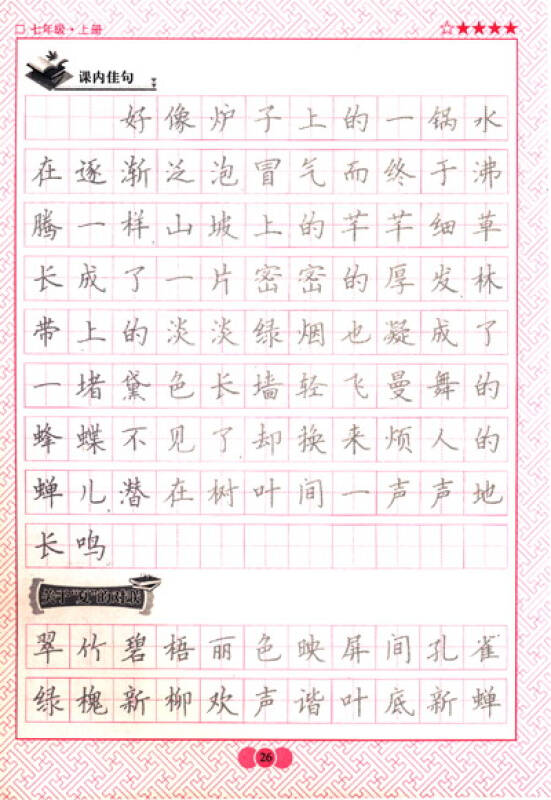 七年级·上册
课内佳句
好像炉子上的一锅水
在逐渐泛泡冒气而终于沸
腾一样山坡上的芊芊细草
长成了一片密密的厚发林
带上的淡淡绿烟也凝成了
一堵黛色长墙轻飞曼舞的
蜂蝶不见了却换来烦人的
蝉儿潜在树叶间一声声地
长鸣
关于“夏”的对联
翠竹碧梧丽色映屏间孔雀
绿槐新柳欢声谐叶底新蝉
26